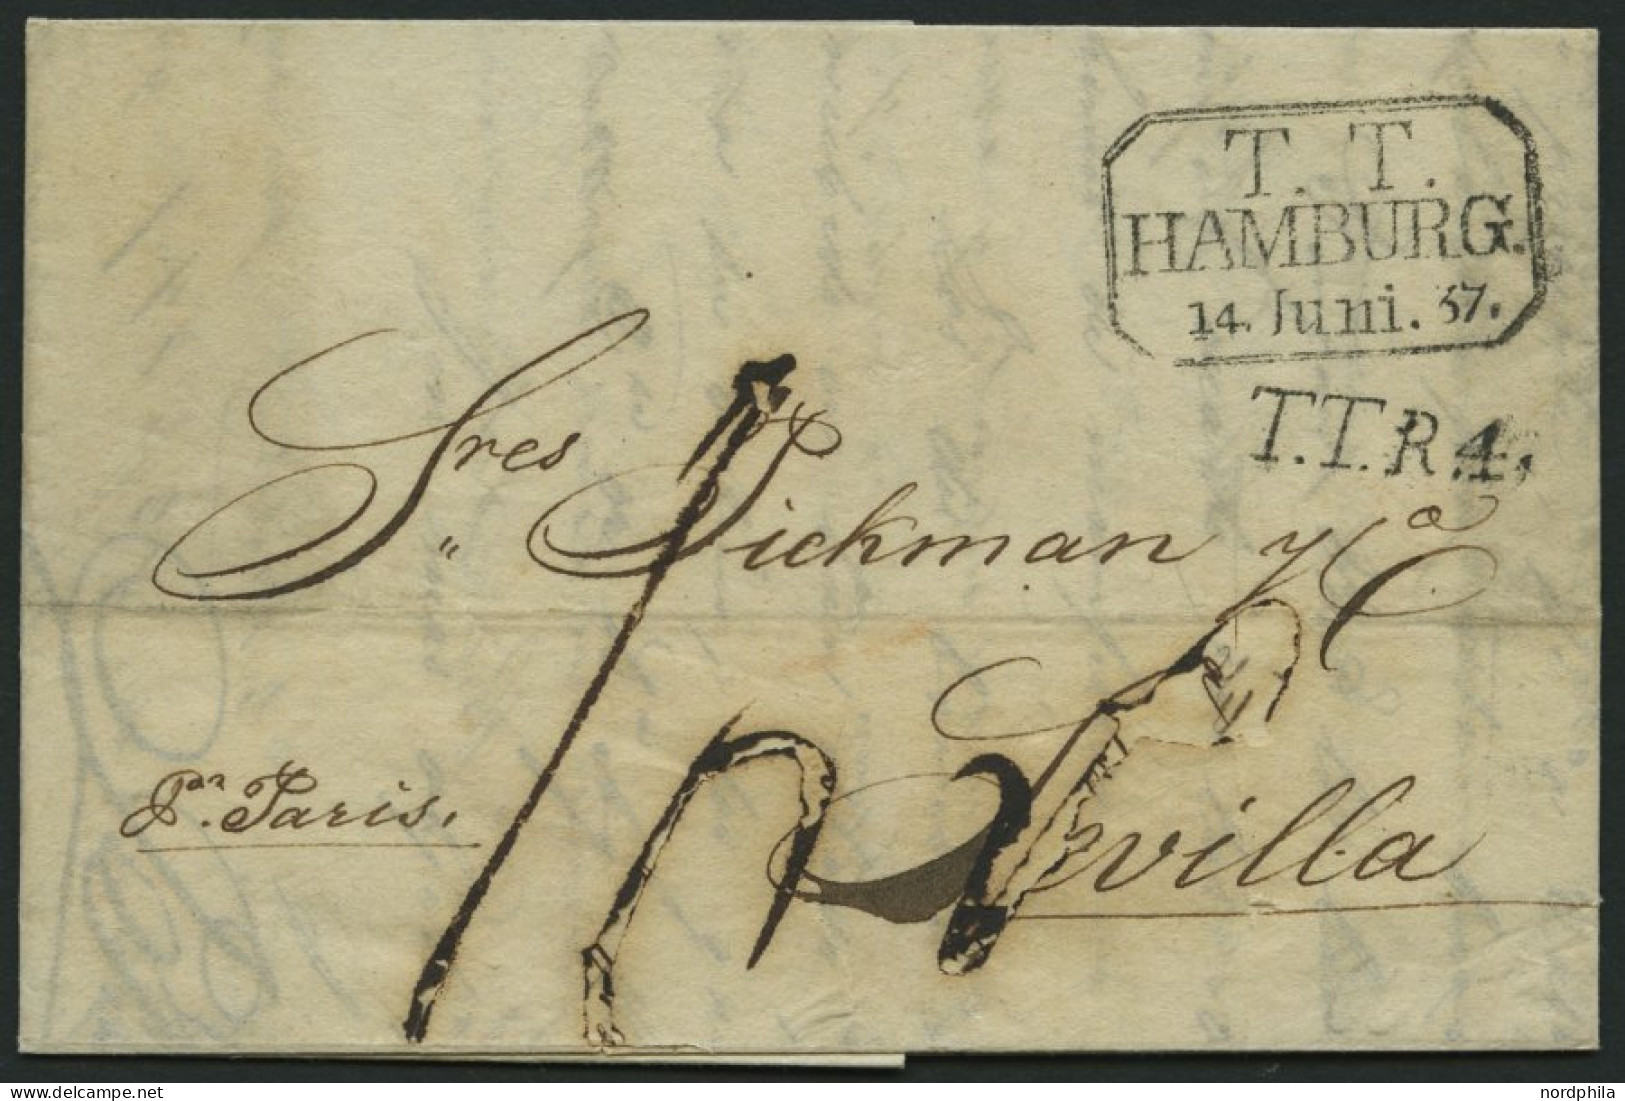 T. T.
HAMBURG.
14. Juni. 37.
T.T.R.4.
Sres Pickman y Ca
Sevilla
Pr. Paris.
nordphila